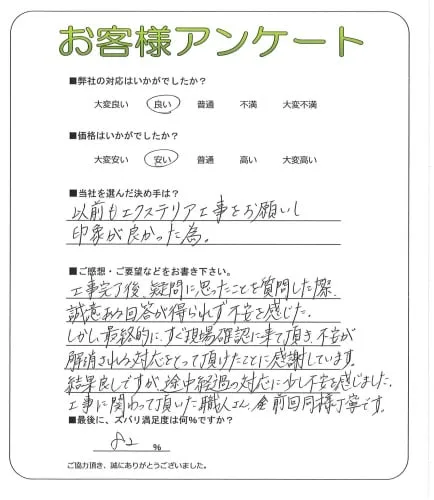 お客様アンケート
■弊社の対応はいかがでしたか？
大変良い 良い 普通 不満 大変不満
■価格はいかがでしたか？
大変安い 安い 普通 高い 大変高い
■当社を選んだ決め手は？
以前もエクステリア工事をお願いし
印象が良かった為。
■ご感想・ご要望などをお書き下さい。
工事完了後、疑問に思ったことを質問した際、
誠意ある回答が得られず不安を感じた。
しかし、最終的に、すぐ現場確認に来て頂き、不安が
解消される対応をとって頂けたことに感謝しています。
結果良しですが、途中経過の対応に少し不安を感じました。
工事に関わって頂いた職人さん、全前回同様丁寧です。
■最後に、ズバリ満足度は何％ですか？
82 ％
ご協力頂き、誠にありがとうございました。